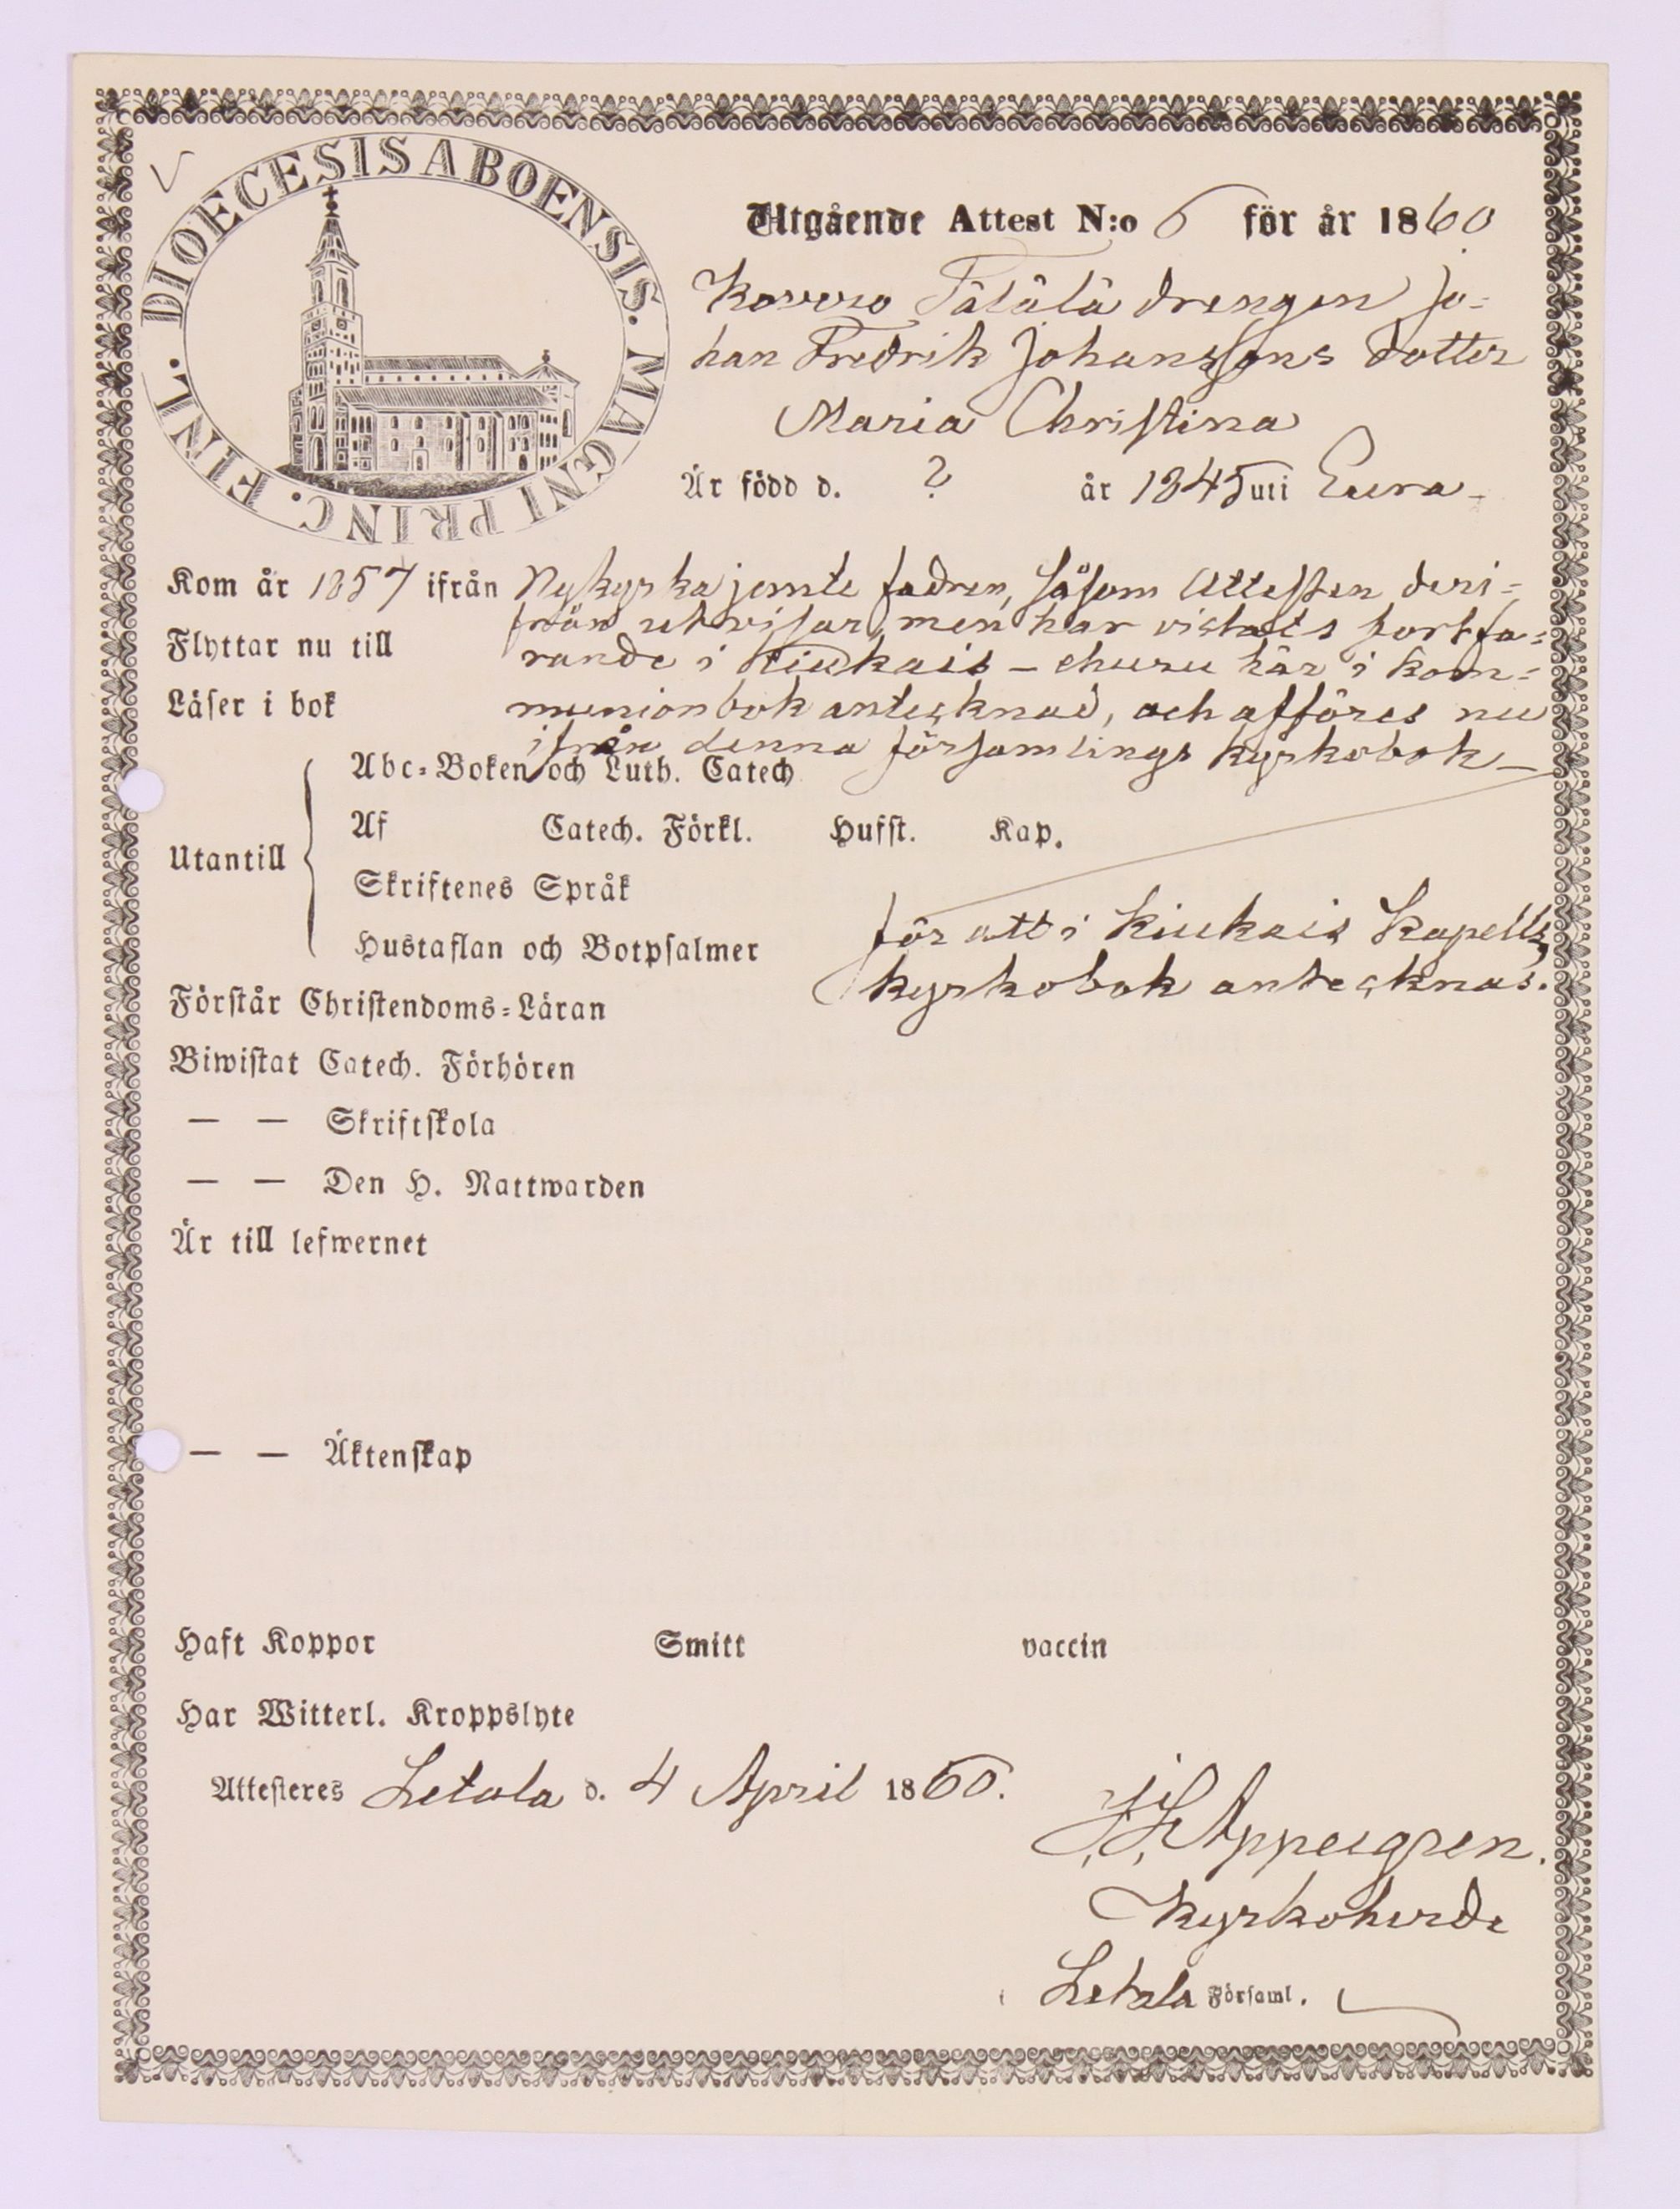 DIOECESIS ABOENSIS. MAGNI PRINC. FINL.
Utgående Attest N:o 6 för år 1860
Kovero Tälälä drengen Jo-
han Fredrik Johanssons dotter
Maria Christina
Är född d. ? år 1845 uti Eura
Kom år 1857 ifrån Nykyrka jemte fadren, såsom Attesten deri-
från utvisar, men har vistats fortfa-
Flyttar nu till
rande i Kiukais – ehuru här i kom-
Läser i bok
munionbok antecknad, och afföres nu
ifrån denna församlings kyrkobok –
Utantill
Abc-Boken och Luth. Catech
Af Catech. Förkl. Husst. Kap.
Skriftenes Språk
för att i Kiukais Kapells
Hustaflan och Botpsalmer
kyrkobok antecknas.
Förstår Christendoms-Läran
Biwistat Catech. Förhören
— — Skriftskola
— — Den H. Nattwarden
Är till lefwernet
— — Äktenskap
Haft Koppor Smitt vaccin
Har Witterl. Kroppslyte
Attesteres Letala d. 4 April 1860.
Appelgren.
Kyrkoherde
i Letala Församl.